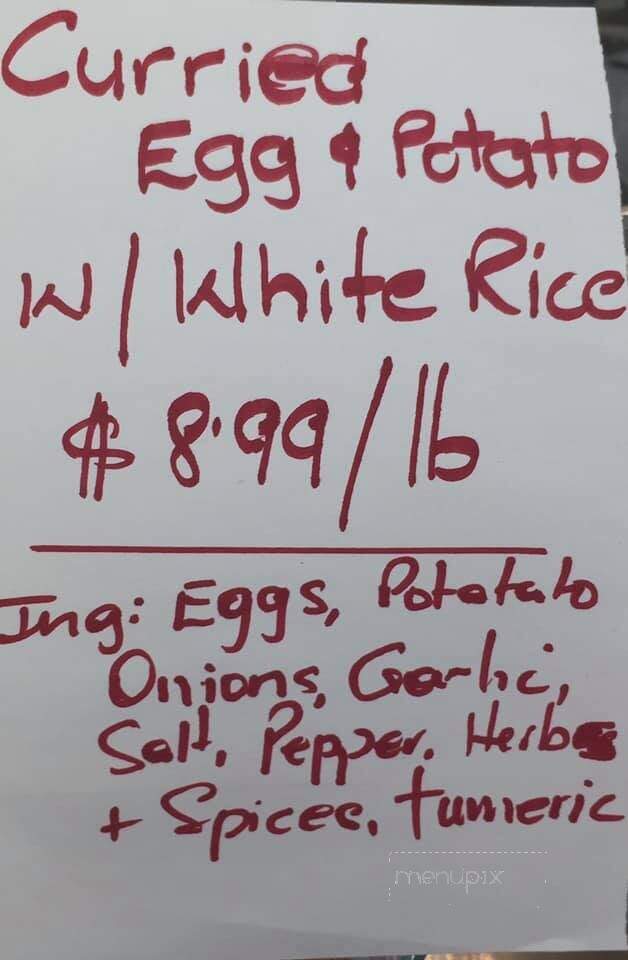 Curried
Egg & Potato
w/ White Rice
$ 8.99/lb
Ing: Eggs, Potatato
Onions, Garlic,
Salt, Pepper, Herbs
+ Spices, tumeric
menupix